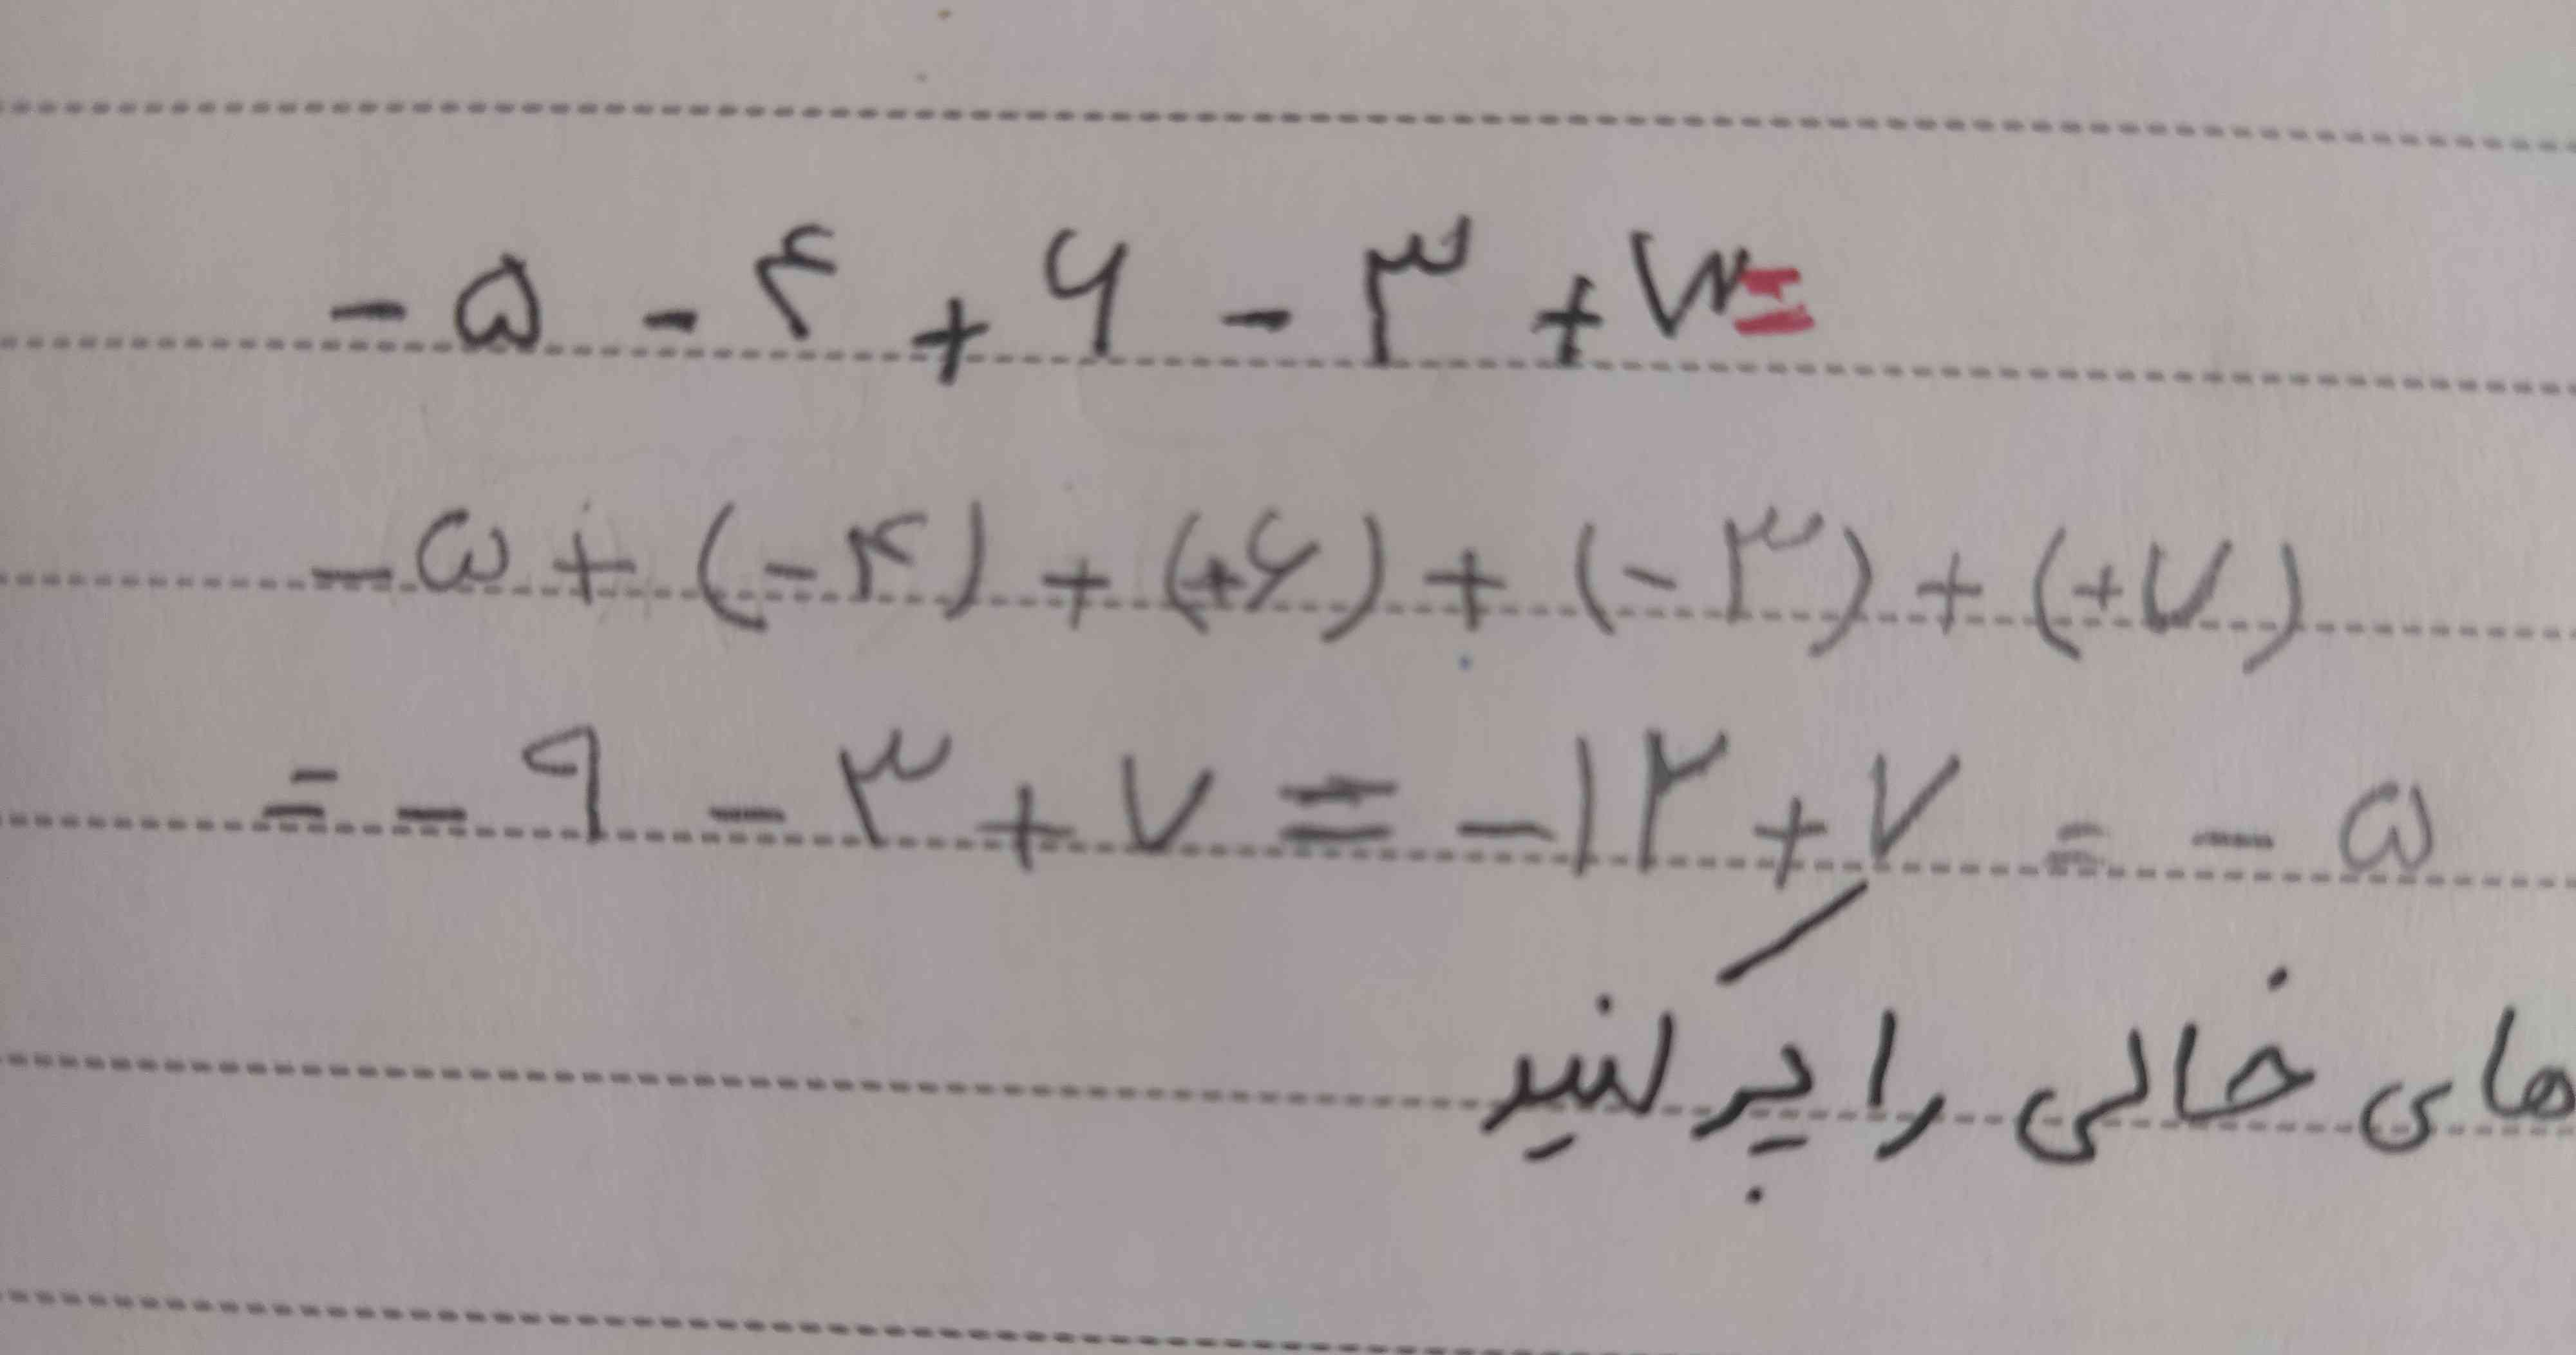 - ۵ - ۴ + ۶ - ۳ + ۷ =
- ۵ + (-۴) + (+۶) + (-۳) + (+۷)
= - ۹ - ۳ + ۷ = -۱۲ + ۷ = - ۵
های خالی را پر کنید